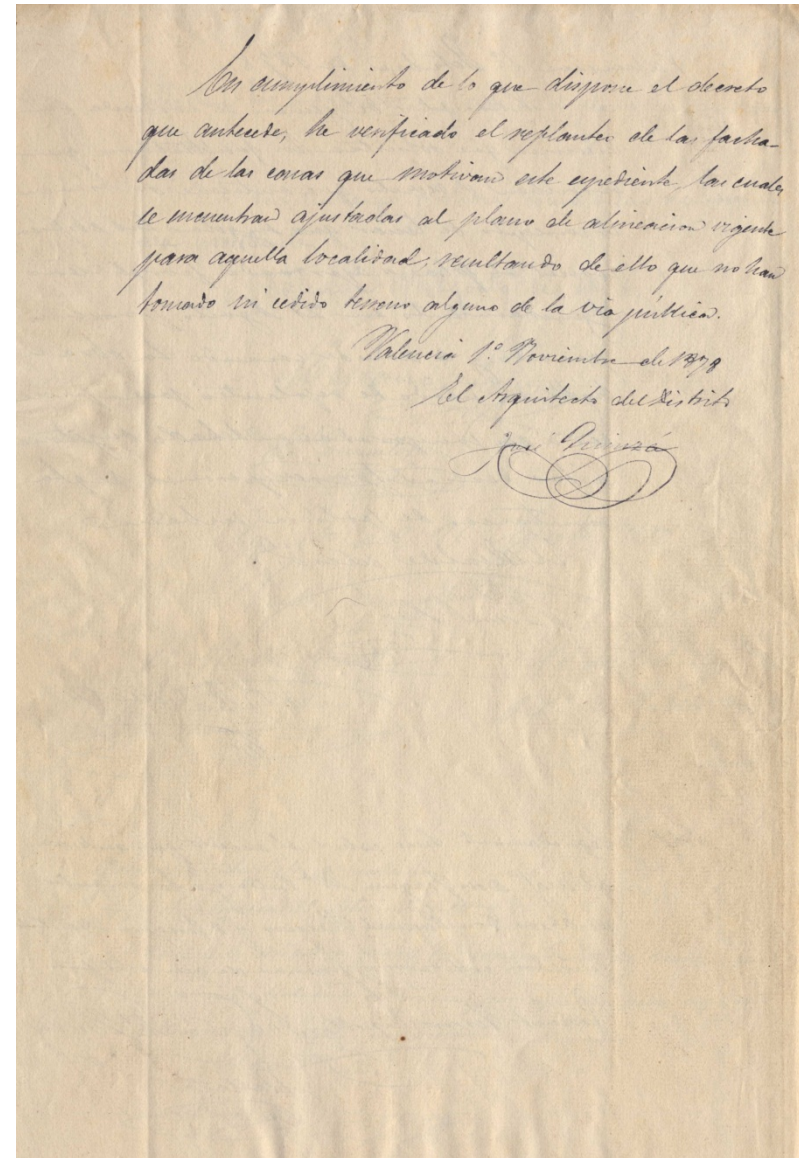 En cumplimiento de lo que dispone el decreto
que antecede, he verificado el replanteo de las facha-
das de las casas que motivan este espediente, las cuales
se encuentran ajustadas al plano de alineacion vigente
para aquella localidad; resultando de ello que no han
tomado ni cedido terreno alguno de la via pública.
Valencia 1.º Noviembre de 1878
El Arquitecto del Distrito
José Quinzá